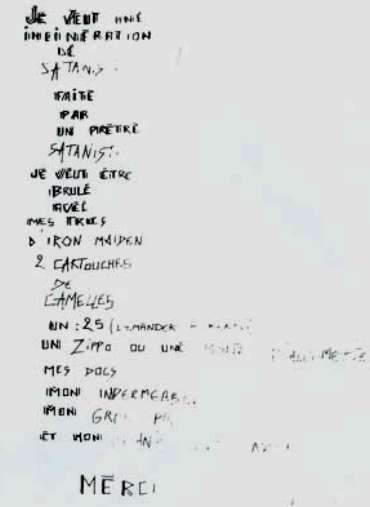 JE VEUT UNE
INCINÉRATION
DE
SATANIS.
FAITE
PAR
UN PRÊTRE
SATANIST.
JE VEUT ÊTRE
BRULÉ
AVEC
MES TRUCS
D'IRON MAIDEN
2 CARTOUCHES
DE
CAMELLES
UN : 25 (
UN ZIPPO OU UNE
MES DOCS
MON
MON
ET MON
MERCI